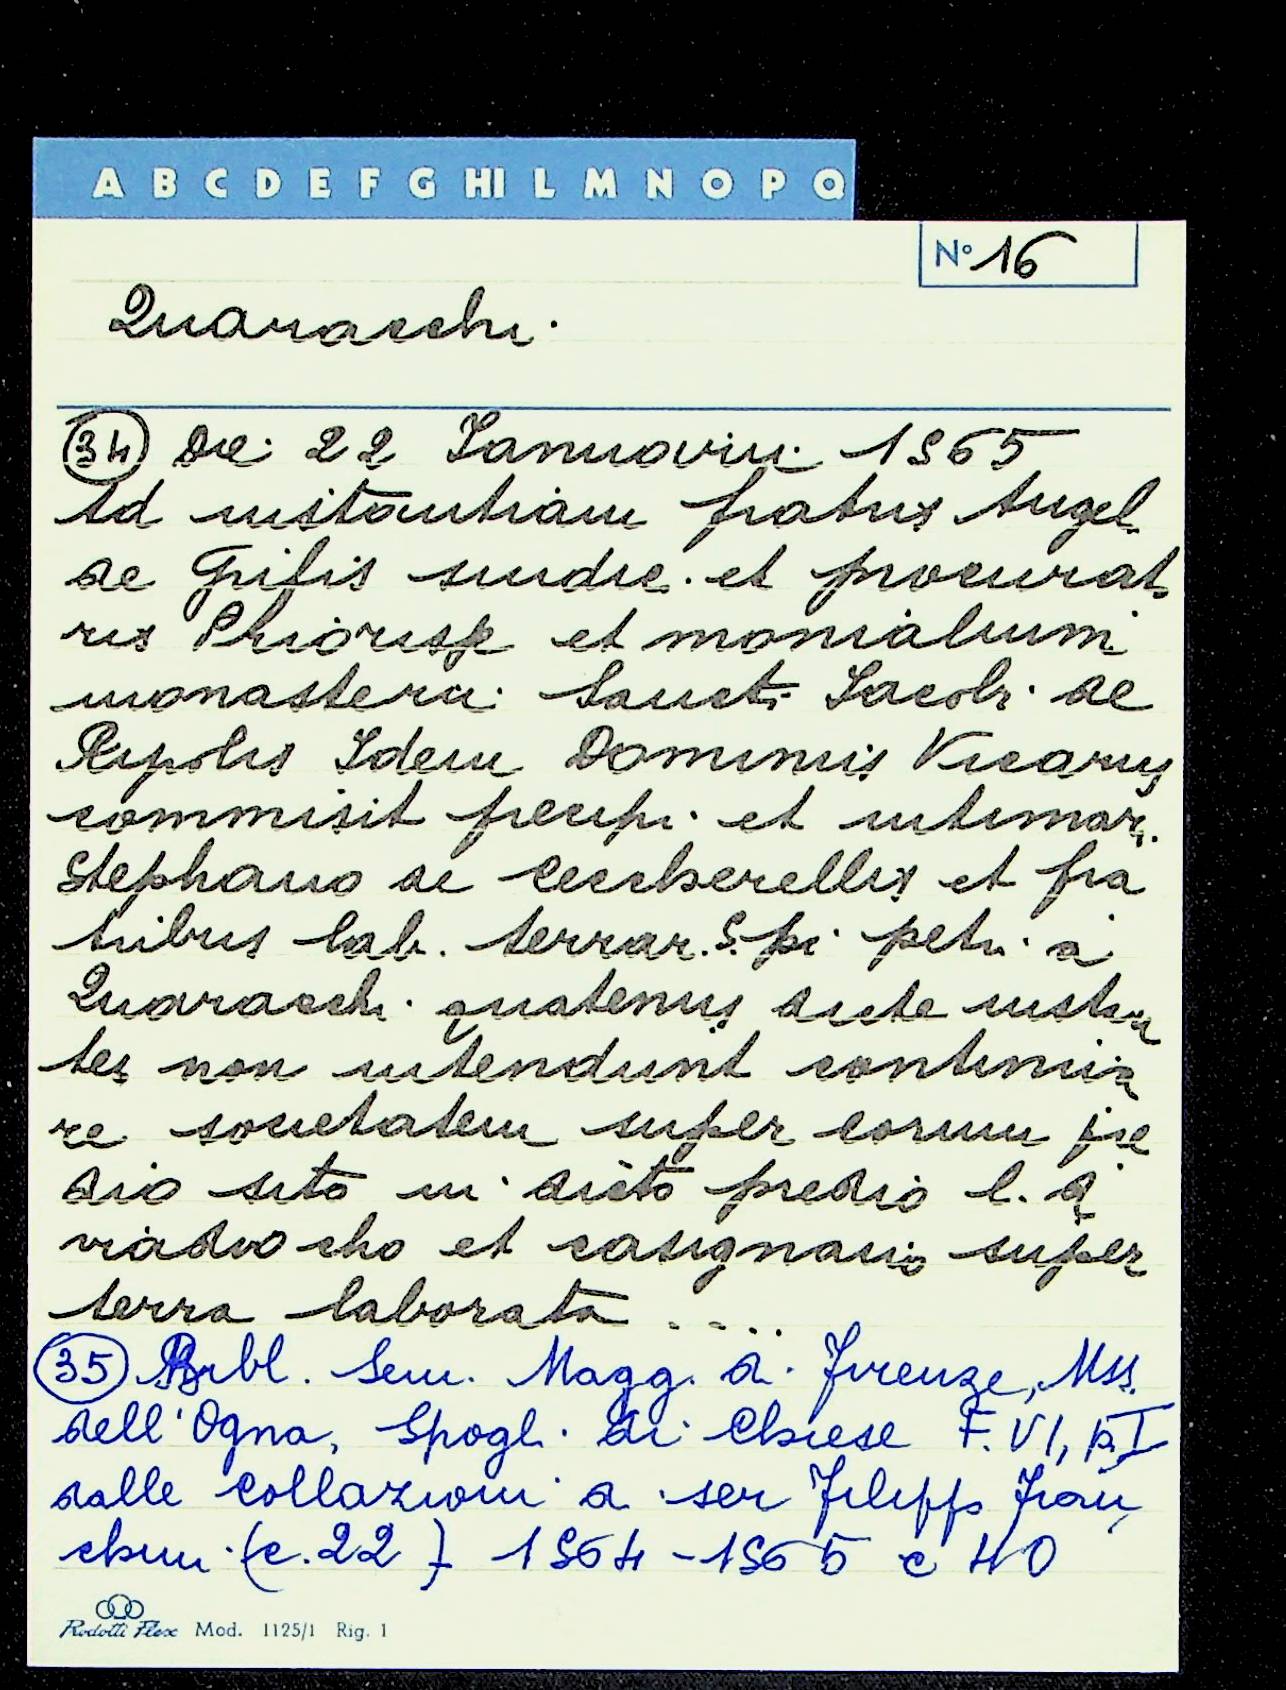 A B C D E F G HI L M N O P Q
N° 16
Quaracchi.
(34) Die 22 Ianuarii 1565
Ad instantiam fratris Angel.
de Grifis sindic. et procurat.
ris Priorisse et monialium
monasterii Sancti Iacobi de
Ripolis Idem Dominus Vicarius
commisit precipi et intimar.
Stephano de Ceccherellis et fra
tribus lab. terrar. S. pi petri a
Quaracchi quatenus dicte
tes non intendunt continua
re societatem super eorum pre
dio sito in dicto predio l. d.
viadvocho et casignano super
terra laborata ....
(35) Bibl. Sem. Magg. di Firenze, Mss.
dell'Ogna, Spogli di Chiese F. VI, p. I
dalle collazioni di ser Filippo Fran
chini (c. 22) 1564-1565 c 40
Rodotti Flex Mod. 1125/1 Rig. 1